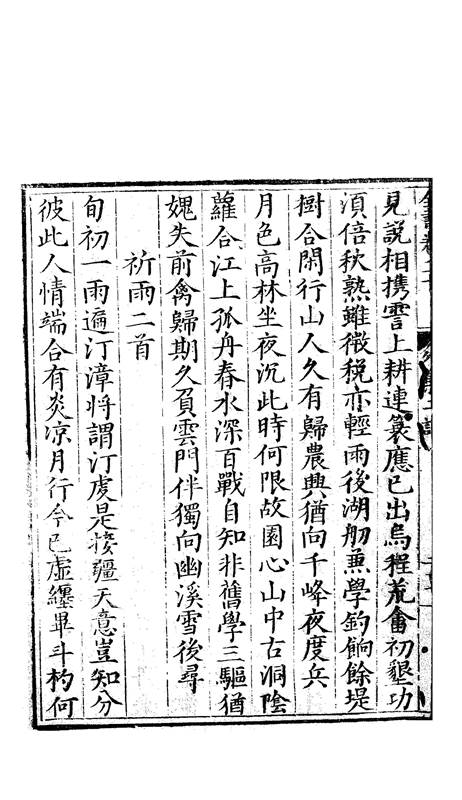 見說相携霅上耕連蓑應已出烏程荒畬初墾功
湏倍秋熟雖微稅亦輕雨後湖舠兼學釣餉餘堤
樹合閑行山人久有歸農興猶向千峰夜度兵
月色高林坐夜沉此時何限故園心山中古洞陰
蘿合江上孤舟春水深百戰自知非舊學三驅猶
媿失前禽歸期久負雲門伴獨向幽溪雪後尋
祈雨二首
旬初一雨遍汀漳將謂汀虔是接疆天意豈知分
彼此人情端合有炎凉月行今已虛纏畢斗杓何